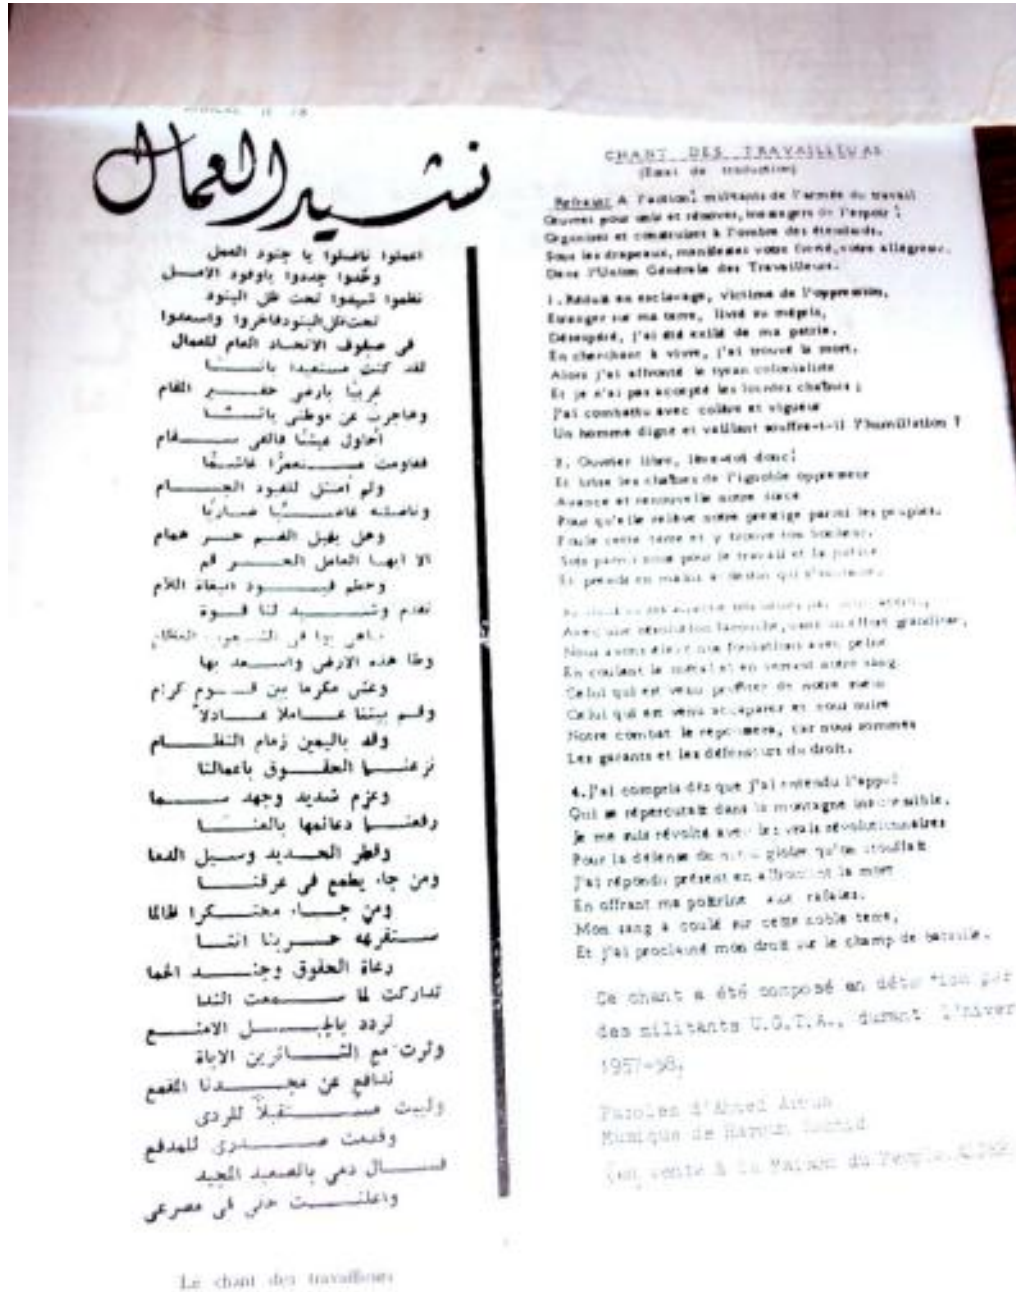 نشيد العمال
اعملوا ناضلوا يا جنود العمل
وحدوا جددوا ياوفود الامل
نظموا شيدوا تحت ظل البنود
تحت ظل البنود فاخروا واسعدوا
في صفوف الاتحاد العام للعمال
لقد كنت مستعبدا بائسا
غريبا بارضي حقير المقام
وهاجرت عن موطني يائسا
احاول عيشا فالقى سقام
فقاومت مستعمرا غاشما
ولم أمتثل للقيود الجسام
وناضلته غاضبا ضاربا
وهل يقبل الضيم حر همام
الا ايها العامل الحر قم
وحطم قيود البغاة اللآم
تقدم وشيد لنا قوة
نباهي بها في الشعوب العظام
وطا هذه الارض واسعد بها
وعش مكرما بين قوم كرام
وقم بيننا عاملا عادلا
وقد باليمين زمام النظام
نزعنا الحقوق باعمالنا
وعزم شديد وجهد سما
رفعنا دعائمها بالعنا
وقطر الحديد وسيل الدما
ومن جاء يطمع في عرقنا
ومن جاء محتكرا ظالما
ستقهره حربنا اننا
رعاة الحقوق وجند الحما
تداركت لما سمعت الندا
تردد بالجبل الامنع
وثرت مع الثائرين الاباة
ندافع عن مجدنا المقمع
ولبيت مستقبلاً للردى
وقدمت صدري للمدفع
فسال دمي بالصعيد المجيد
واعلنت حقي في مصرعي
Le chant des travailleurs
CHANT DES TRAVAILLEURS
(Essai de traduction)
Refrain: A l'action! militants de l'armée du travail
Œuvrez pour unir et rénover, messagers de l'espoir !
Organisez et construisez à l'ombre des étendards.
Sous les drapeaux, manifestez votre fierté, votre allégresse.
Dans l'Union Générale des Travailleurs.
1. Réduit en esclavage, victime de l'oppression,
Etranger sur ma terre, livré au mépris,
Désespéré, j'ai été exilé de ma patrie.
En cherchant à vivre, j'ai trouvé la mort.
Alors j'ai affronté le tyran colonialiste
Et je n'ai pas accepté les lourdes chaînes ;
J'ai combattu avec colère et vigueur
Un homme digne et vaillant souffre-t-il l'humiliation ?
2. Ouvrier libre, lève-toi donc!
Et brise les chaînes de l'ignoble oppresseur
Avance et renouvelle notre force
Pour qu'elle relève notre prestige parmi les peuples.
Foule cette terre et y trouve ton bonheur.
Sois parmi nous pour le travail et la justice
Et prends en mains le destin qui
Avec une résolution farouche, dans un effort grandiose,
Nous avons élevé nos fondations avec peine
En coulant le métal et en versant notre sang.
Celui qui est venu profiter de notre sueur
Celui qui est venu accaparer et nous nuire
Notre combat le repoussera, car nous sommes
Les garants et les défenseurs du droit.
4. J'ai compris dès que j'ai entendu l'appel
Qui se répercutait dans la montagne inaccessible.
Je me suis révolté avec les vrais révolutionnaires
Pour la défense de notre gloire qu'on étouffait
J'ai répondu présent en affrontant la mort
En offrant ma poitrine aux rafales.
Mon sang a coulé sur cette noble terre,
Et j'ai proclamé mon droit sur le champ de bataille.
Ce chant a été composé en détention par
des militants U.G.T.A., durant l'hiver
1957-58.
Paroles d'Ahmed
Musique de Haroun Rachid
(en vente à la Maison du Peuple